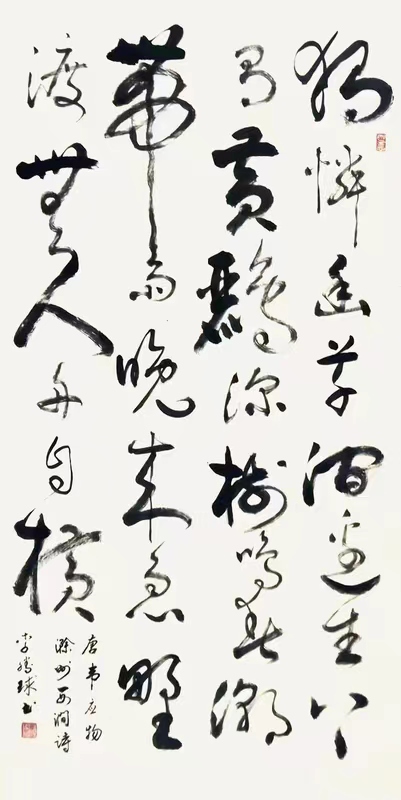 獨憐幽草澗邊生上
有黄鸝深樹鳴春潮
帶雨晚來急野
渡無人舟自橫
唐韋應物
滁州西澗詩
李球書